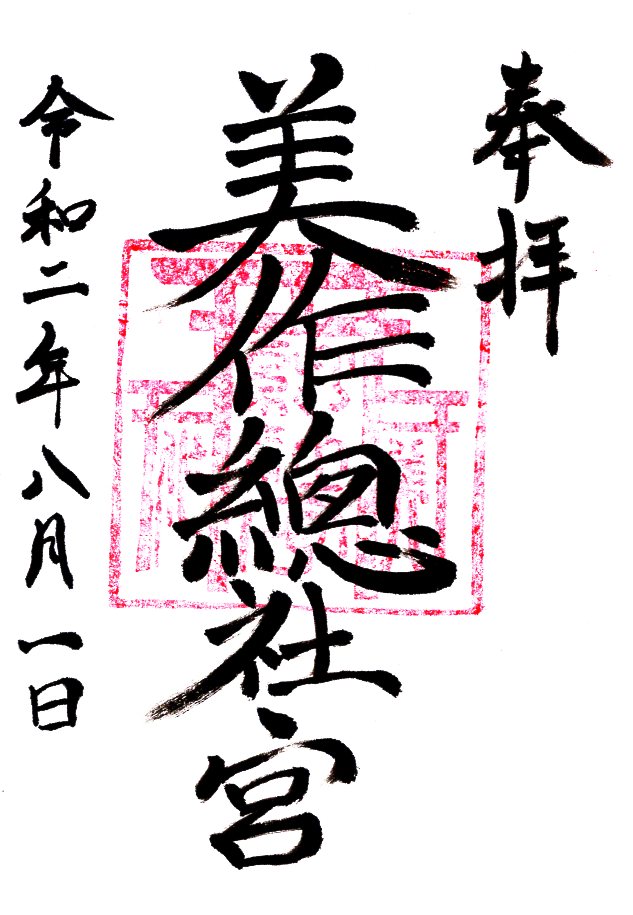 奉拝
美作總社宮
令和二年八月一日